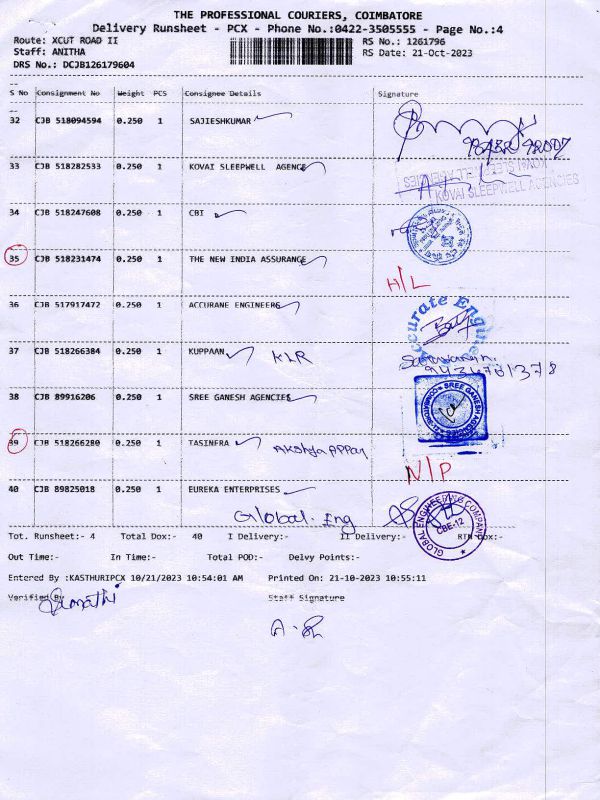 THE PROFESSIONAL COURIERS, COIMBATORE
Delivery Runsheet - PCX - Phone No.:0422-3505555 - Page No.:4
Route: XCUT ROAD II RS No.: 1261796
Staff: ANITHA RS Date: 21-Oct-2023
DRS No.: DCJB126179604
S No Consignment No Weight PCS Consignee Details Signature
32 CJB 518094594 0.250 1 SAJIESHKUMAR
33 CJB 518282533 0.250 1 KOVAI SLEEPWELL AGENCE
KOVAI SLEEPWELL AGENCIES
34 CJB 518247608 0.250 1 CBI
35 CJB 518231474 0.250 1 THE NEW INDIA ASSURANGE
H/L
36 CJB 517917472 0.250 1 ACCURANE ENGINEERS
Accurate Engineers
37 CJB 518266384 0.250 1 KUPPAAN KLR
38 CJB 89916206 0.250 1 SREE GANESH AGENCIES
SREE GANESH AGENCIES
39 CJB 518266280 0.250 1 TASINFRA
N/P
40 CJB 89825018 0.250 1 EUREKA ENTERPRISES
Global. Eng
GLOBAL ENGINEERING COMPANY
CBE-12
Tot. Runsheet:- 4 Total Dox:- 40 I Delivery:- II Delivery:- RTN Dox:-
Out Time:- In Time:- Total POD:- Delvy Points:-
Entered By :KASTHURIPCX 10/21/2023 10:54:01 AM Printed On: 21-10-2023 10:55:11
Verified By Staff Signature